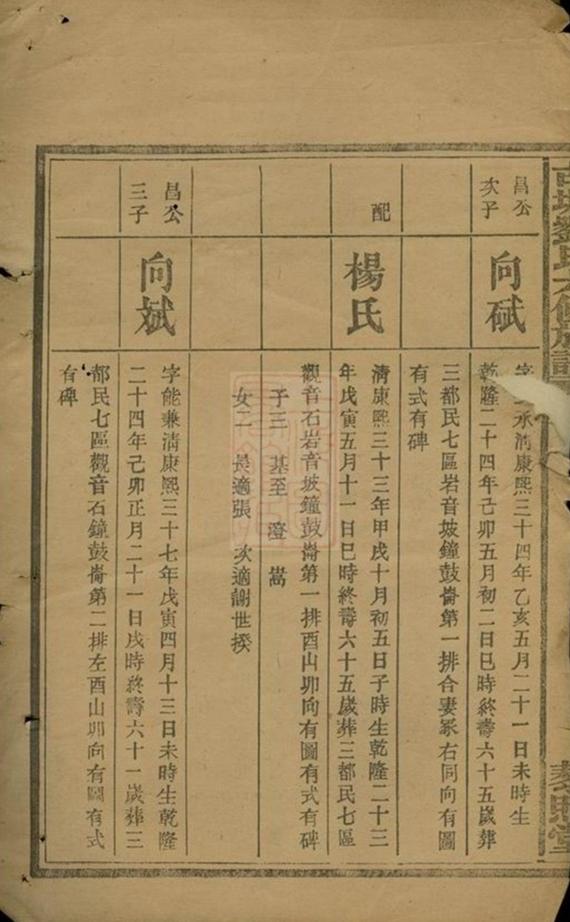 劉氏
修族譜
藜照堂
昌公
次子
向斌
字 承清康熙三十四年乙亥五月二十一日未時生
乾隆二十四年己卯五月初二日巳時終壽六十五歲葬
三都民七區岩音坡鐘鼓崙第一排合妻冢右同向有圖
有式有碑
配
楊氏
清康熙三十三年甲戌十月初五日子時生乾隆二十三
年戊寅五月十一日巳時終壽六十五歲葬三都民七區
觀音石岩音坡鐘鼓崙第一排酉山卯向有圖有式有碑
子三 基至 澄 嵩
女二 長適張 次適謝世揆
昌公
三子
向斌
字能兼清康熙三十七年戊寅四月十三日未時生乾隆
二十四年己卯正月二十一日戌時終壽六十一歲葬三
都民七區觀音石鐘鼓崙第二排左酉山卯向有圖有式
有碑